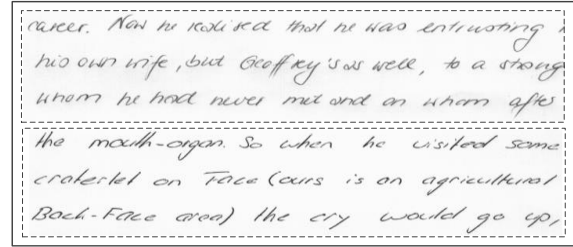 career. Now he realised that he was entrusting
his own wife, but Geoffrey's as well, to a strang
whom he had never met and on whom after
the mouth-organ. So when he visited some
craterlet on Face (ours is an agricultural
Back-Face area) the cry would go up,